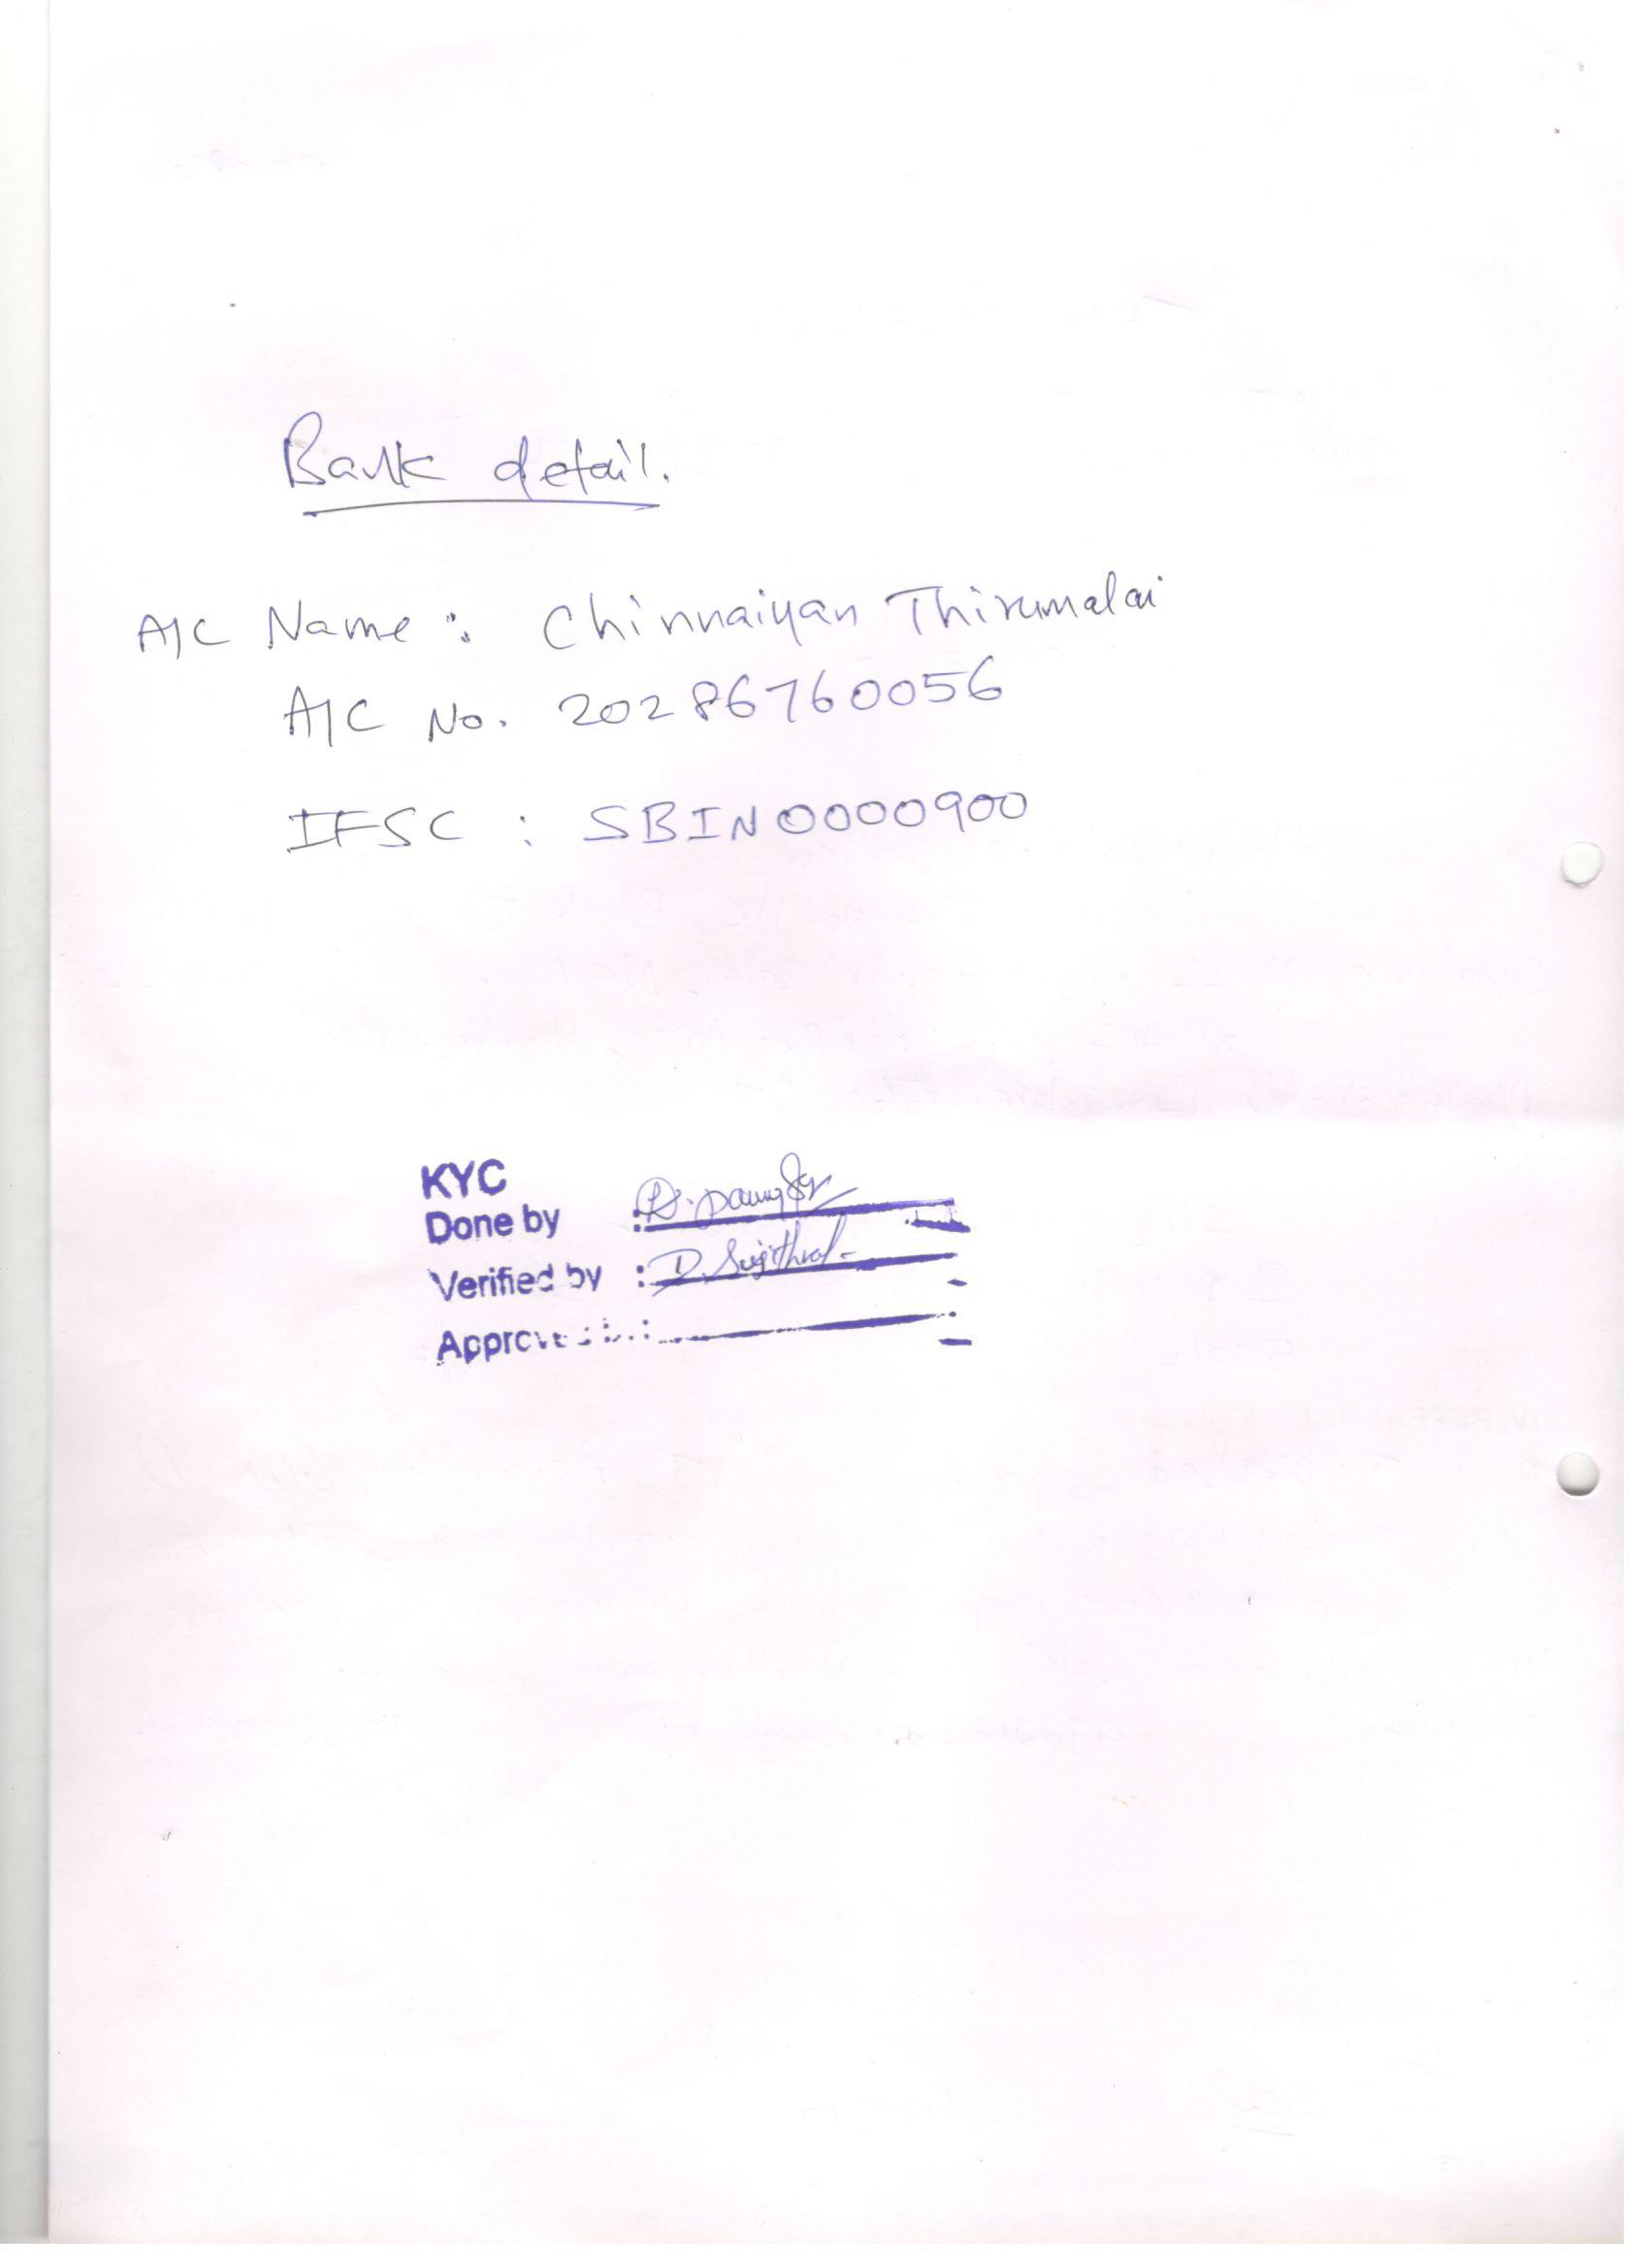 Bank detail.
A/C Name : Chinnaiyan Thirumalai
A/C No. 20286760056
IFSC : SBIN0000900
KYC
Done by :
Verified by : D. Sujithra
Approved by :